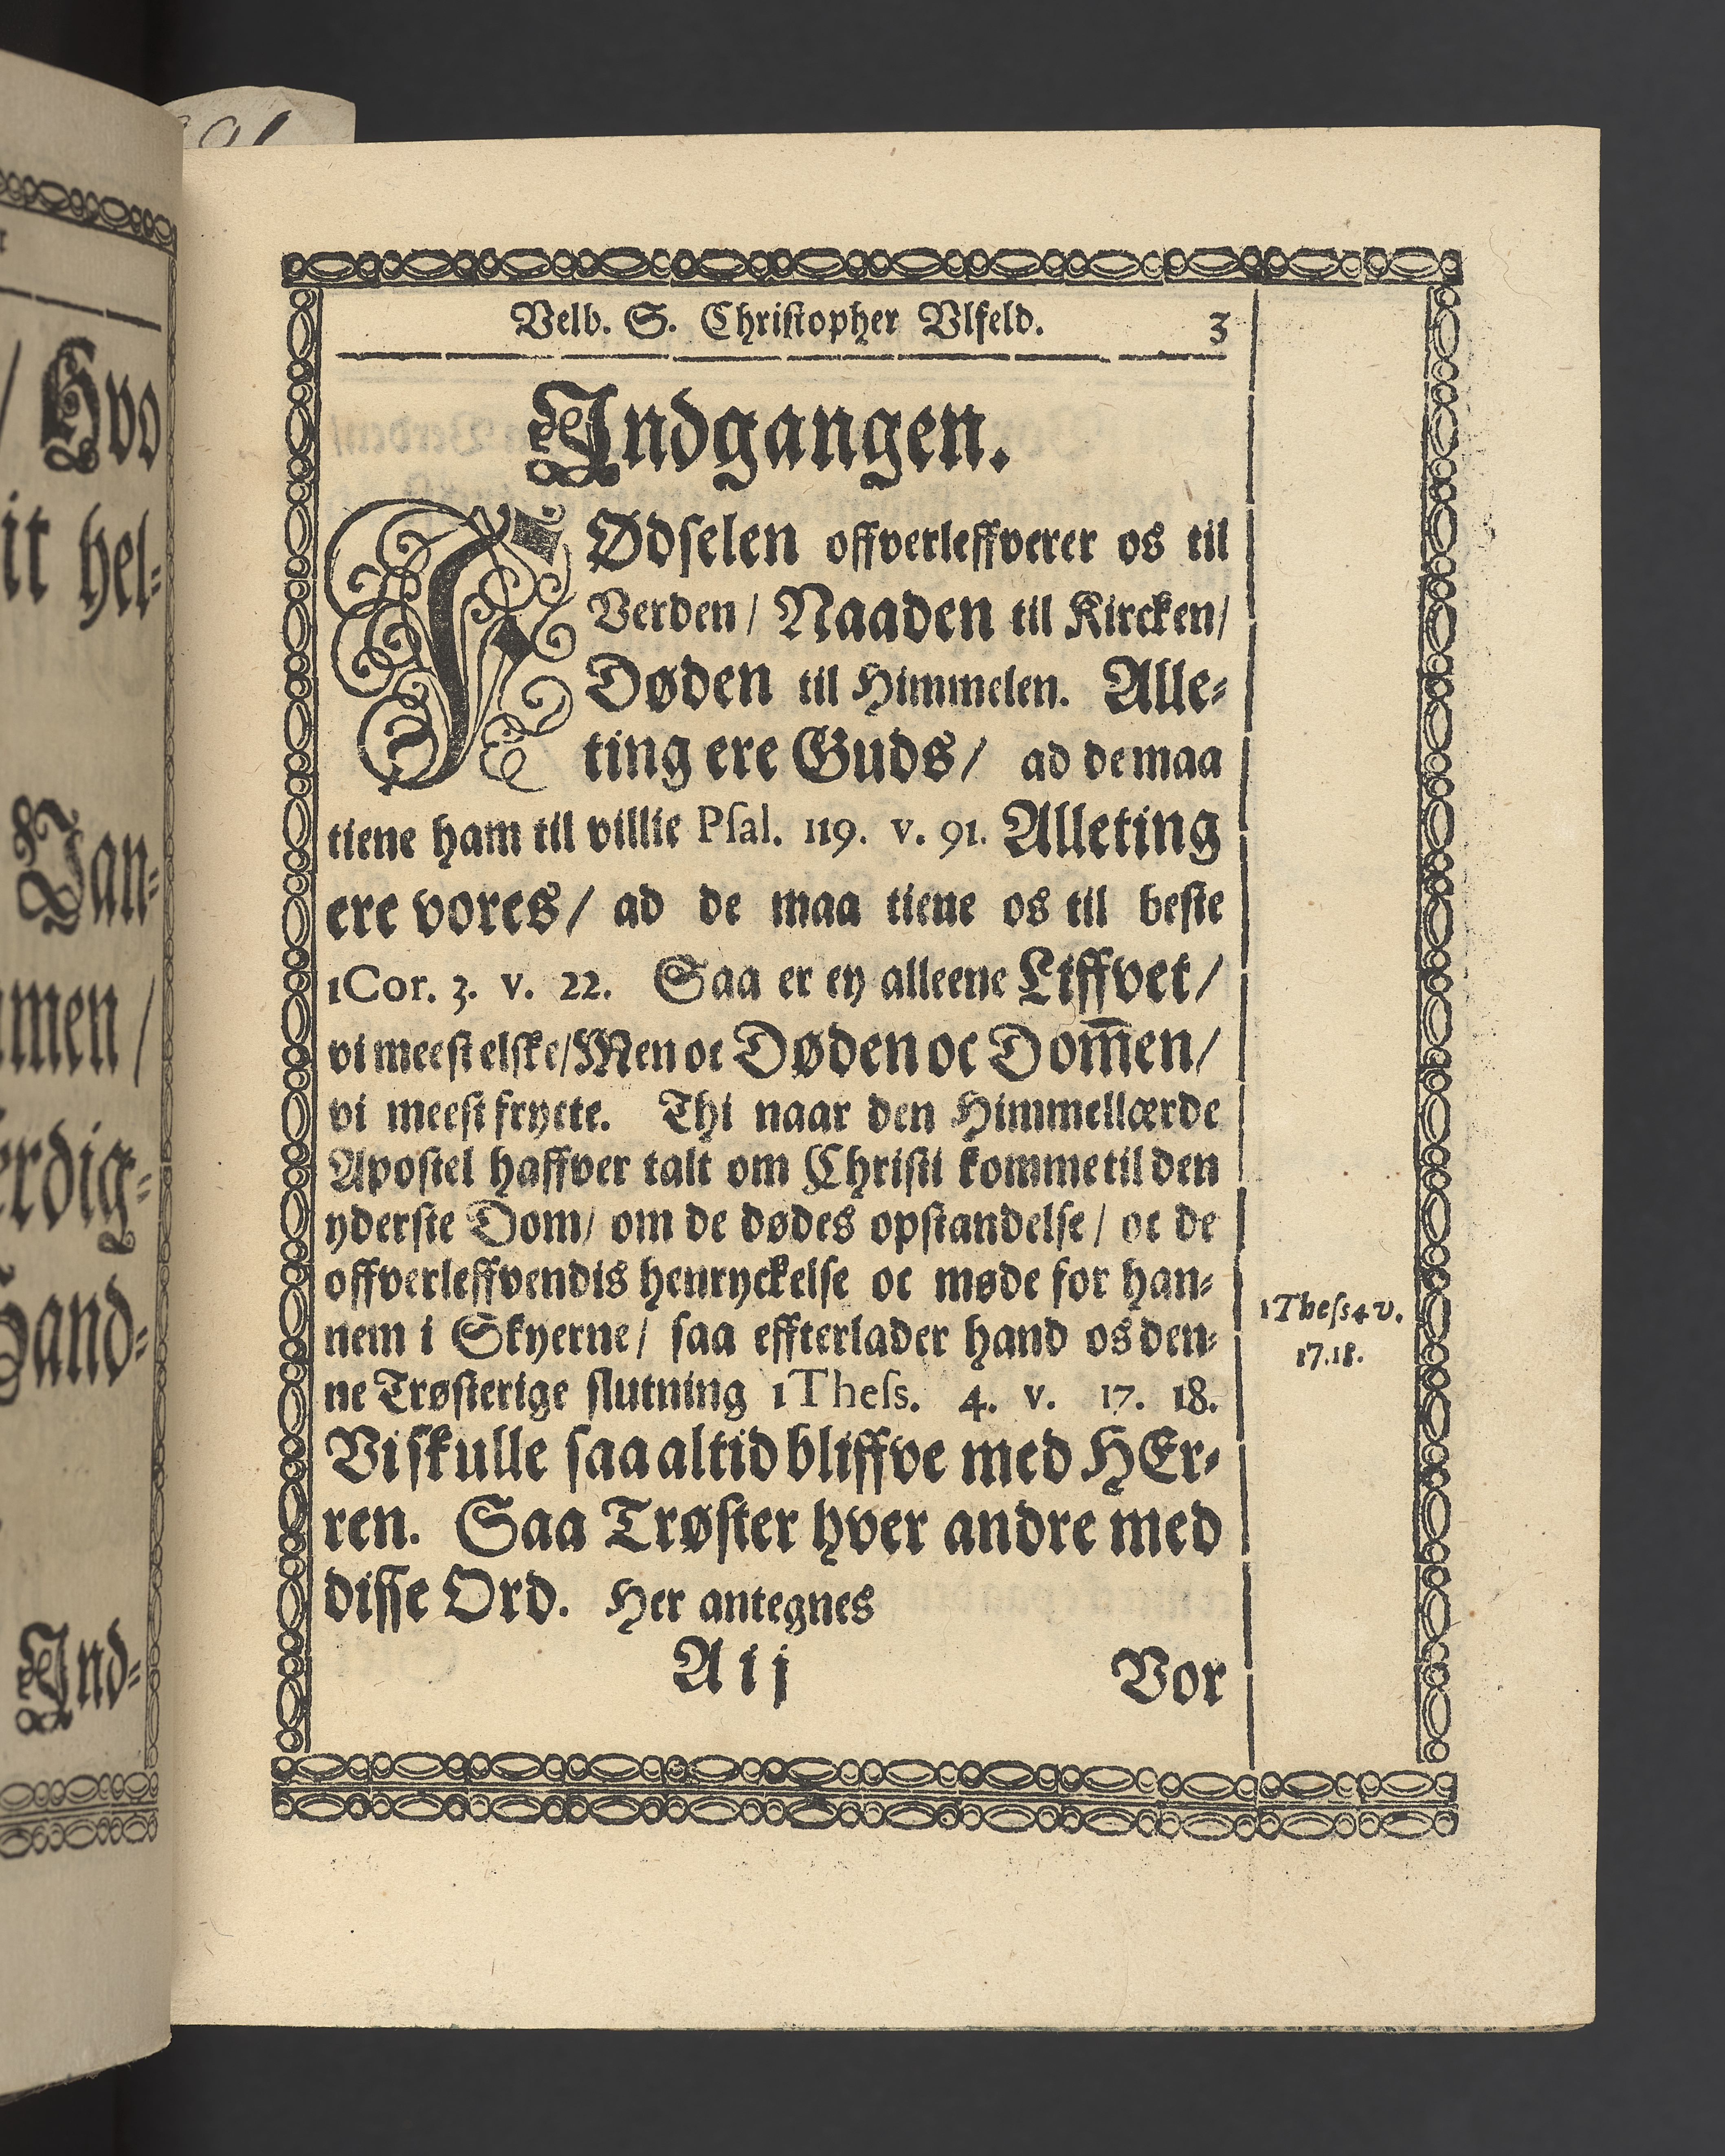 / Hvo
it hel-
men /
erdig-
Hand-
Ind-
Velb. S. Chriſtopher Vlfeld. 3
Indgangen.
FØdſelen offverleffverer os til
Verden / Naaden til Kircken /
Døden til Himmelen. Alle-
ting ere Guds / ad de maa
tiene ham til villie Pſal. 119. v. 91. Alleting
ere vores / ad de maa tiene os til beſte
1 Cor. 3. v. 22. Saa er ey alleene Liffvet /
vi meeſt elſke / Men oc Døden oc Dom̅en /
vi meeſt frycte. Thi naar den Himmellærde
Apoſtel haffver talt om Chriſti komme til den
yderſte Dom / om de dødes opſtandelſe / oc de
offverleffvendis henryckelſe oc møde for han-
nem i Skyerne / ſaa effterlader hand os den-
ne Trøſterige ſlutning 1 Theſſ. 4. v. 17. 18.
Vi ſkulle ſaa altid bliffve med HEr-
ren. Saa Trøſter hver andre med
diſſe Ord. Her antegnes
A ij Vor
1 Theſſ 4 v.
17. 18.